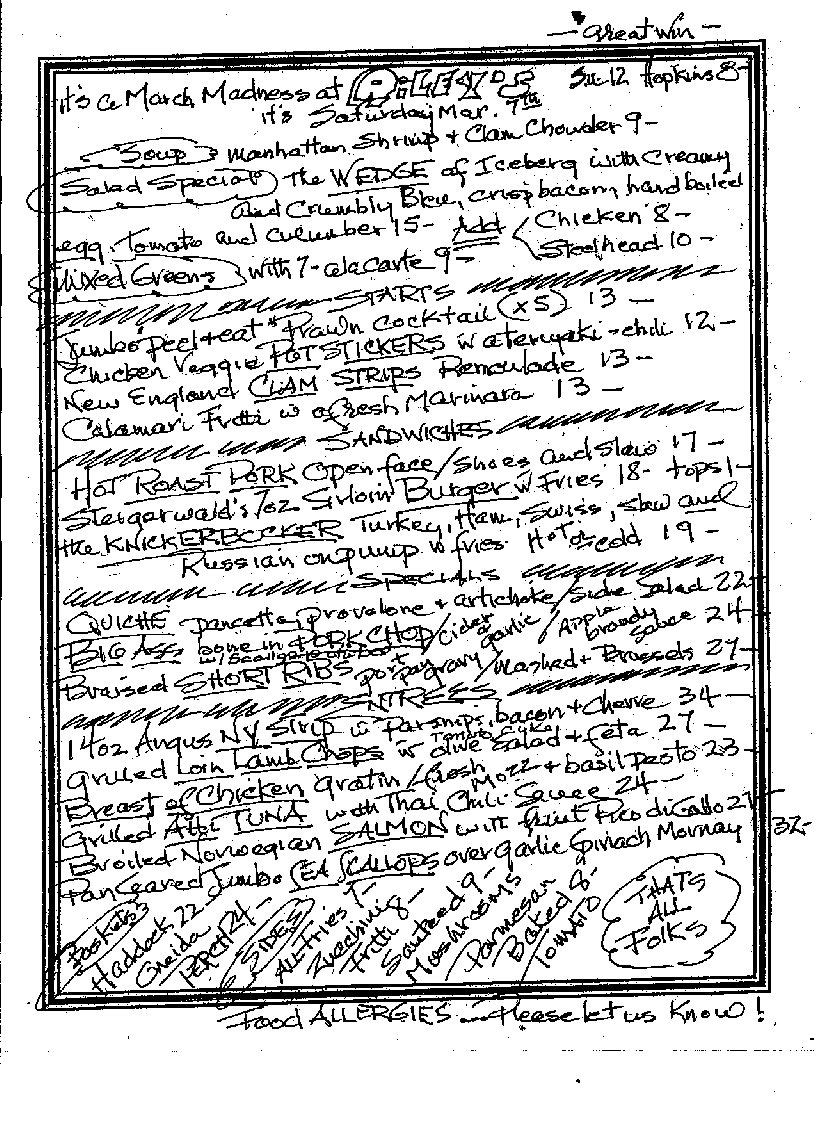 - Great win -
Su 12 Hopkins 8-
it's a March Madness at RiLEY'S
it's Saturday Mar. 7th
Soup Manhattan Shrimp + Clam Chowder 9-
Salad Special The WEDGE of Iceberg with Creamy
and Crumbly Bleu, crisp bacon, hard boiled
egg, Tomato and cucumber 15- Add Chicken 8-
Steelhead 10-
Mixed Greens with 7- ala carte 9-
STARTS
Jumbo "Peel + eat" Prawn Cocktail (x5) 13-
Chicken Veggie POTSTICKERS w a teriyaki-chili 12-
New England CLAM STRIPS Remoulade 13-
Calamari Fritti w a fresh Marinara 13-
SANDWICHES
HOT ROAST PORK Open face/Shoes and Slaw 17-
Steigerwald's 7oz Sirloin Burger w Fries 18- tops 1-
the KNICKERBOCKER Turkey, Ham, Swiss, Slaw and
Russian on pump w fries Hot or cold 19-
SPECIALS
QUICHE pancetta, provolone + artichoke/Side Salad 22-
BIG Ass bone in PORK CHOP/cider garlic/Apple brandy sauce 24-
Braised SHORT RIBS pan gravy/Mashed + Brussels 27-
ENTREES
14oz Angus NY STRIP w Parsnips, bacon + Chevre 34-
Grilled Loin Lamb Chops w Tomato, olive Salad + feta 27-
Breast of Chicken Gratin/fresh Mozz + basil pesto 23-
Grilled AHI TUNA with Thai Chili Sauce 24-
Broiled Norwegian SALMON with Pico di Gallo 27-
Pan Seared Jumbo SEA SCALLOPS over Garlic Spinach Mornay 32-
Baskets
Haddock 22
Oneida
Perch 24-
SIDES
ALL Fries 7-
Zucchini
Fritti 8-
Sauteed 9-
Mushrooms
Parmesan
Baked 8-
Tomato
THATS
ALL
Folks
Food ALLERGIES ... Please let us Know!